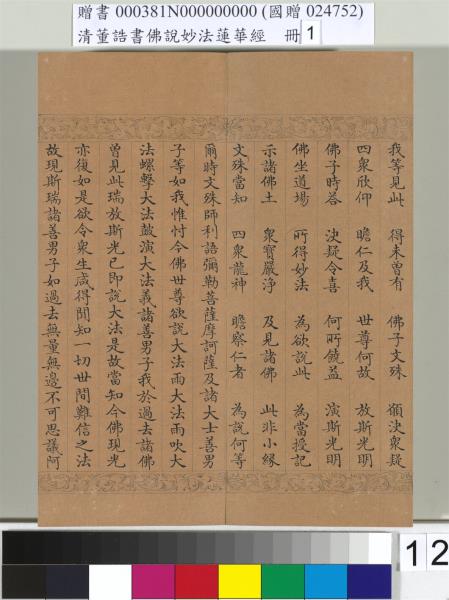 贈書 000381N000000000 (國贈 024752)
清董誥書佛說妙法蓮華經 冊 1
我等見此 得未曾有 佛子文殊 願決衆疑
四衆欣仰 瞻仁及我 世尊何故 放斯光明
佛子時荅 決疑令喜 何所饒益 演斯光明
佛坐道場 所得妙法 為欲說此 為當授記
示諸佛土 衆寶嚴淨 及見諸佛 此非小緣
文殊當知 四衆龍神 瞻察仁者 為說何等
爾時文殊師利語彌勒菩薩摩訶薩及諸大士善男
子等如我惟忖今佛世尊欲說大法雨大法雨吹大
法螺擊大法鼓演大法義諸善男子我於過去諸佛
曾見此瑞放斯光已即說大法是故當知今佛現光
亦復如是欲令衆生咸得聞知一切世間難信之法
故現斯瑞諸善男子如過去無量無邊不可思議阿
12